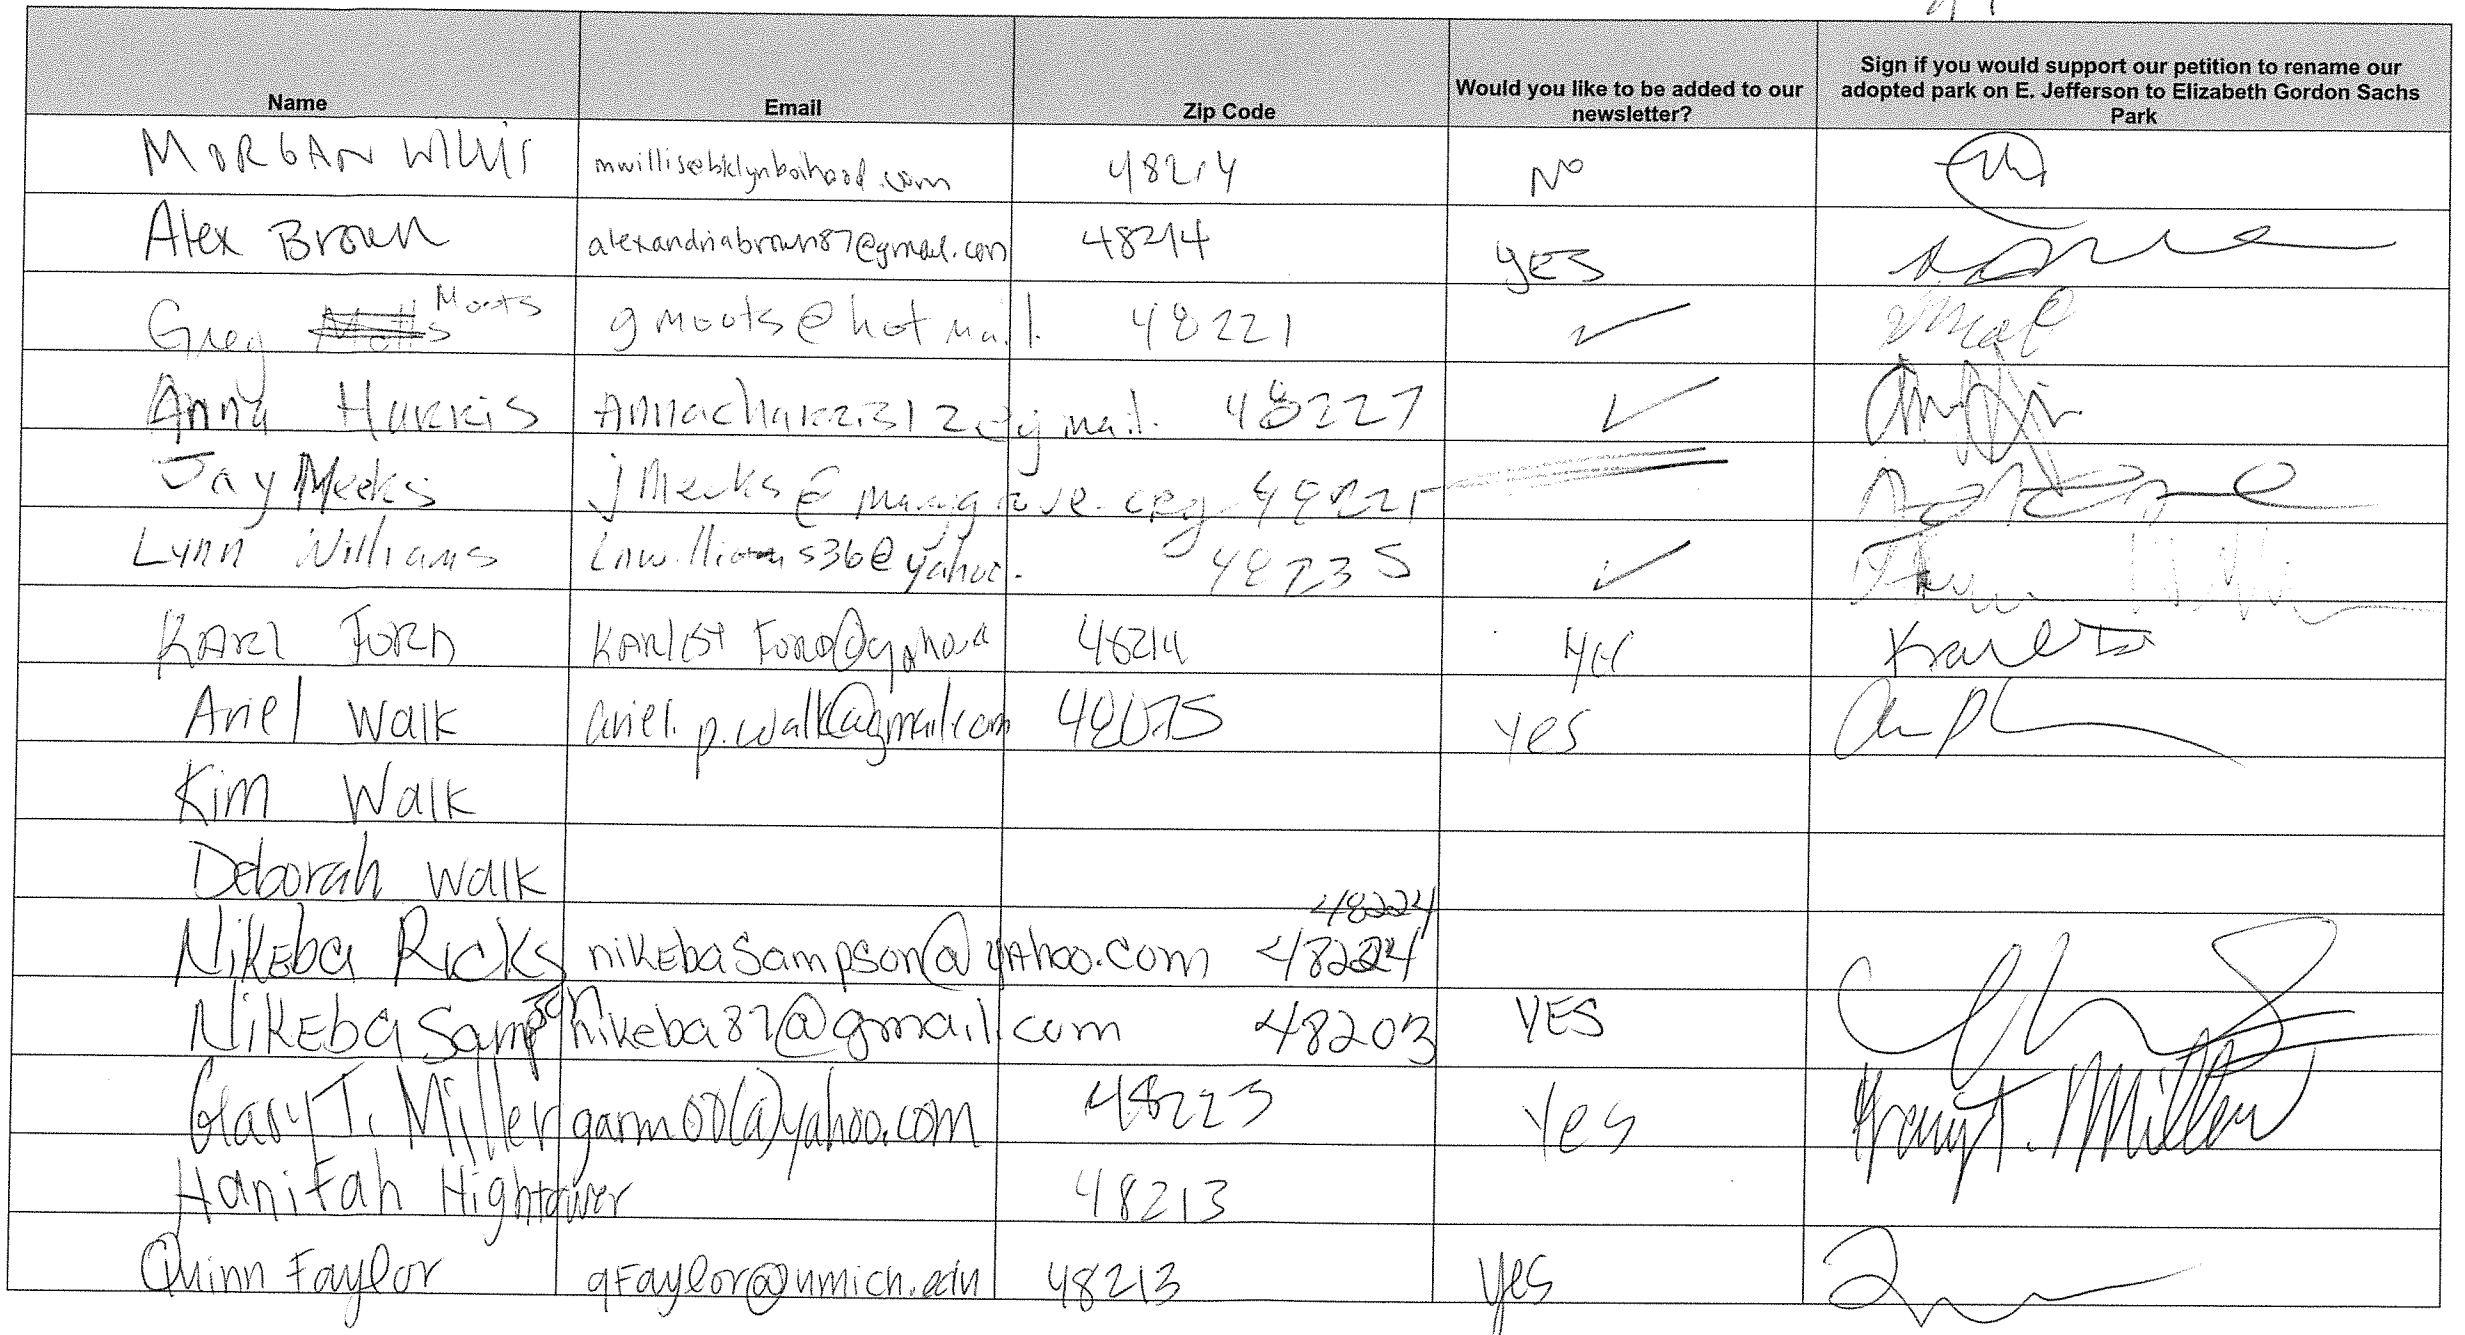 Name Email Zip Code Would you like to be added to our newsletter? Sign if you would support our petition to rename our adopted park on E. Jefferson to Elizabeth Gordon Sachs Park
MORGAN WILLIS mwillis@bklynboihood.com 48214 NO
Alex Brown alexandriabrown87@gmail.com 48214 YES
Greg Moots gmoots@hotmail. 48221 ✓
Anna Harris 48227 ✓
Jay Meeks jmeeks@marygrove.org
Lynn Williams lnwilliams36@yahoo. 48235 ✓
KARL FORD 48214 Yes
Ariel Walk ariel.p.walk@gmail.com 48075 yes
Kim Walk
Deborah Walk
48224
Nikeba Ricks nikebasampson@yahoo.com 48224
Nikeba Sampson nikeba87@gmail.com 48203 YES
Gary T. Miller garmo00@yahoo.com 48223 Yes Gary T. Miller
Hanifah Hightower 48213
Quinn Faylor qfaylor@umich.edu 48213 yes